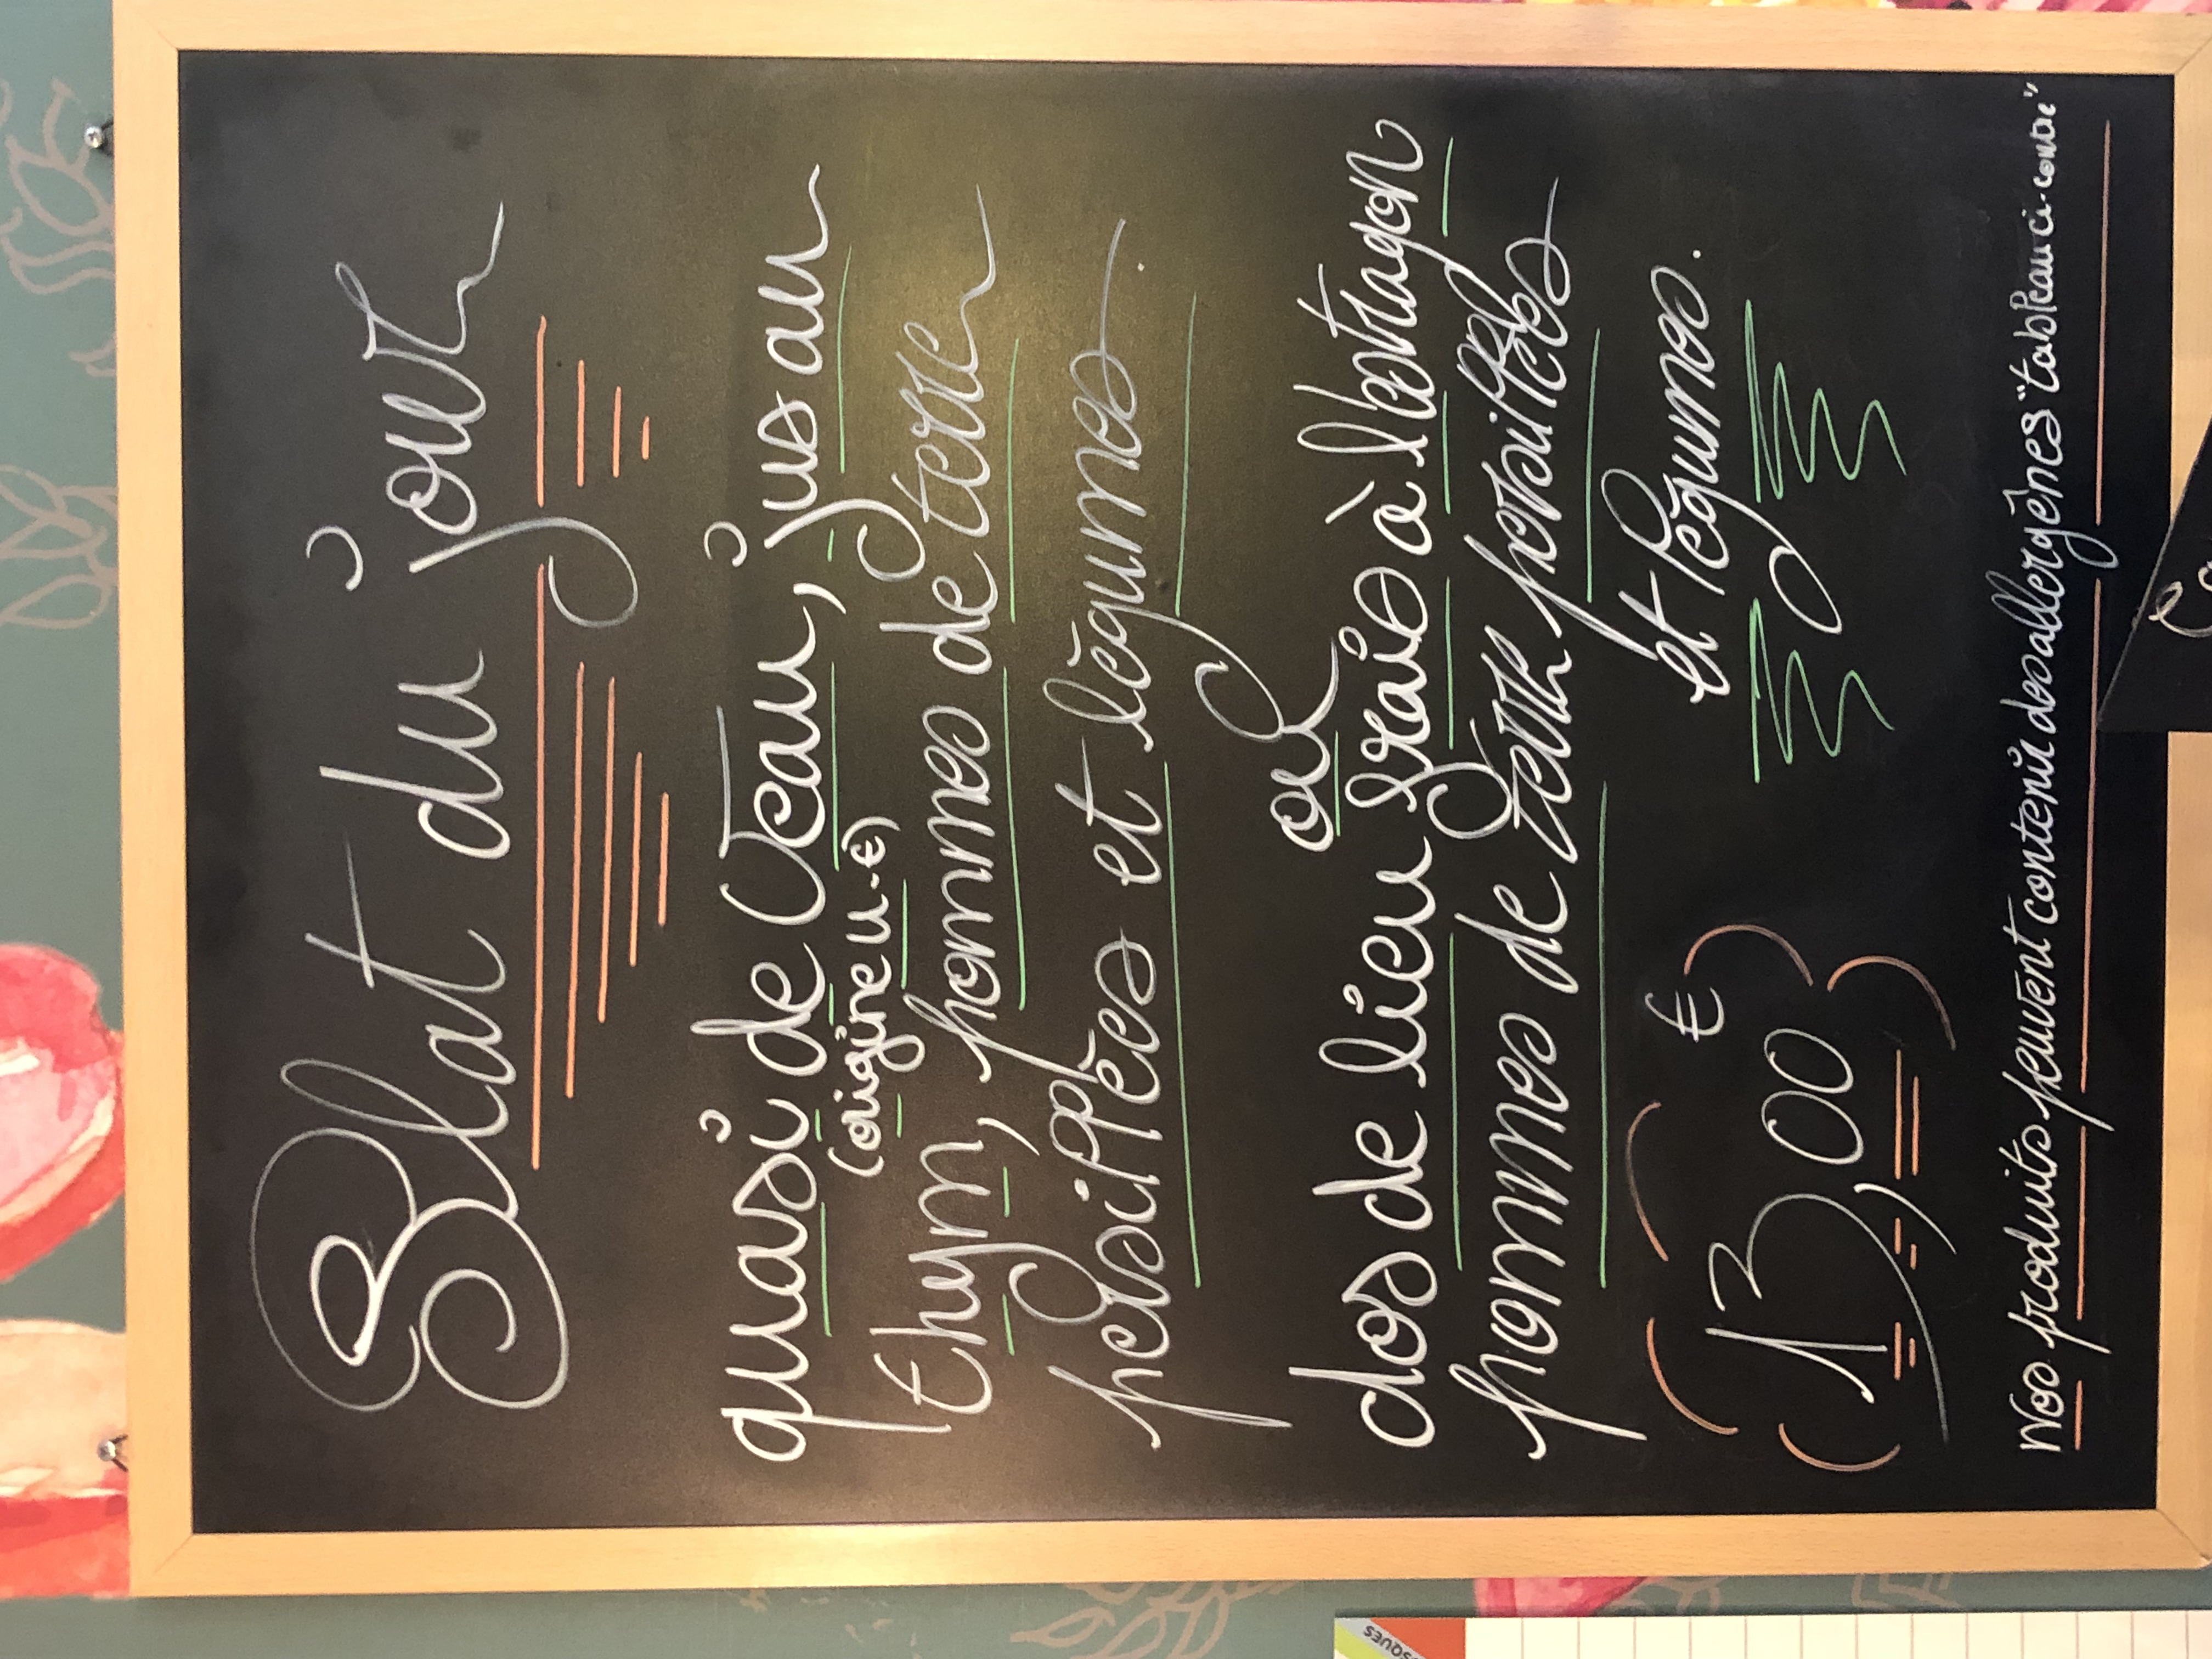 Plat du jour
quasi de Veau, jus au
(origine u.e)
thym, pommes de terre
persillées et légumes
ou
dos de lieu frais à l'estragon
pommes de terre persillées
et légumes.
13,00 €
Nos produits peuvent contenir des allergènes "tableau ci-contre"